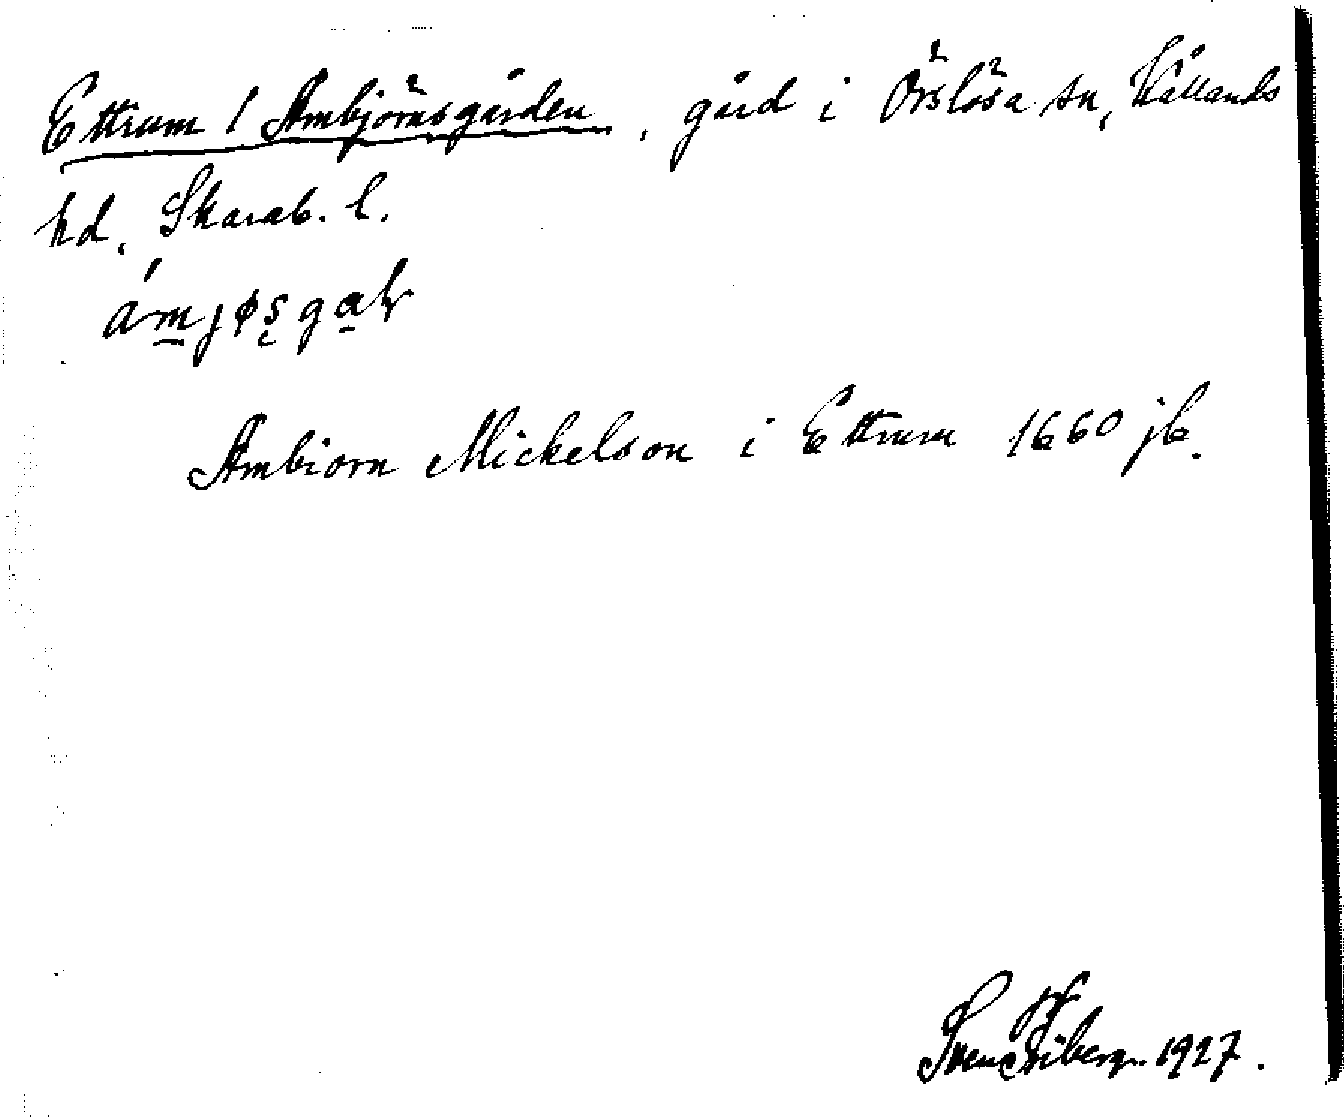 Ettrum 1 Ambjörnsgården, gård i Örslösa sn, Kållands
hd, Skarab. l.
Ambiorn Mickelson i Ettrum 1660 jb.
Sven 1927.